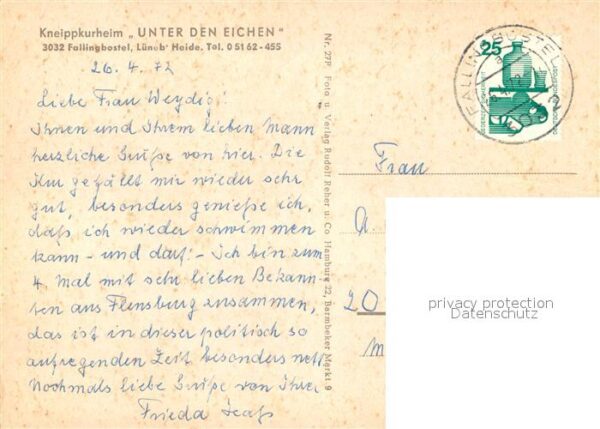 Kneippkurheim „UNTER DEN EICHEN"
3032 Fallingbostel, Lüneb. Heide. Tel. 05162-455
26.4.72
Liebe Frau Weydig!
Ihnen und Ihrem lieben Mann
herzliche Grüße von hier. Die
Kur gefällt mir wieder sehr
gut, besonders genieße ich,
daß ich wieder schwimmen
kann - und darf! - Ich bin zum
4. Mal mit sehr lieben Bekann-
ten aus Flensburg zusammen,
das ist in dieser politisch so
aufregenden Zeit besonders nett
Nochmals liebe Grüße von Ihrer
Frieda
Nr. 27P Foto u. Verlag Rudolf Reher u. Co Hamburg 22, Barmbeker Markt 9
FALLINGBOSTEL
25
DEUTSCHE BUNDESPOST
Frau
20
privacy protection
Datenschutz